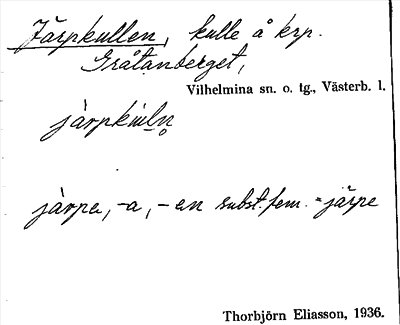 Järpkullen, kulle å krp.
Gråtanberget,
Vilhelmina sn. o. tg., Västerb. l.
järpkùln̥
jàrpa, -a, -en subst. fem. = järpe
Thorbjörn Eliasson, 1936.